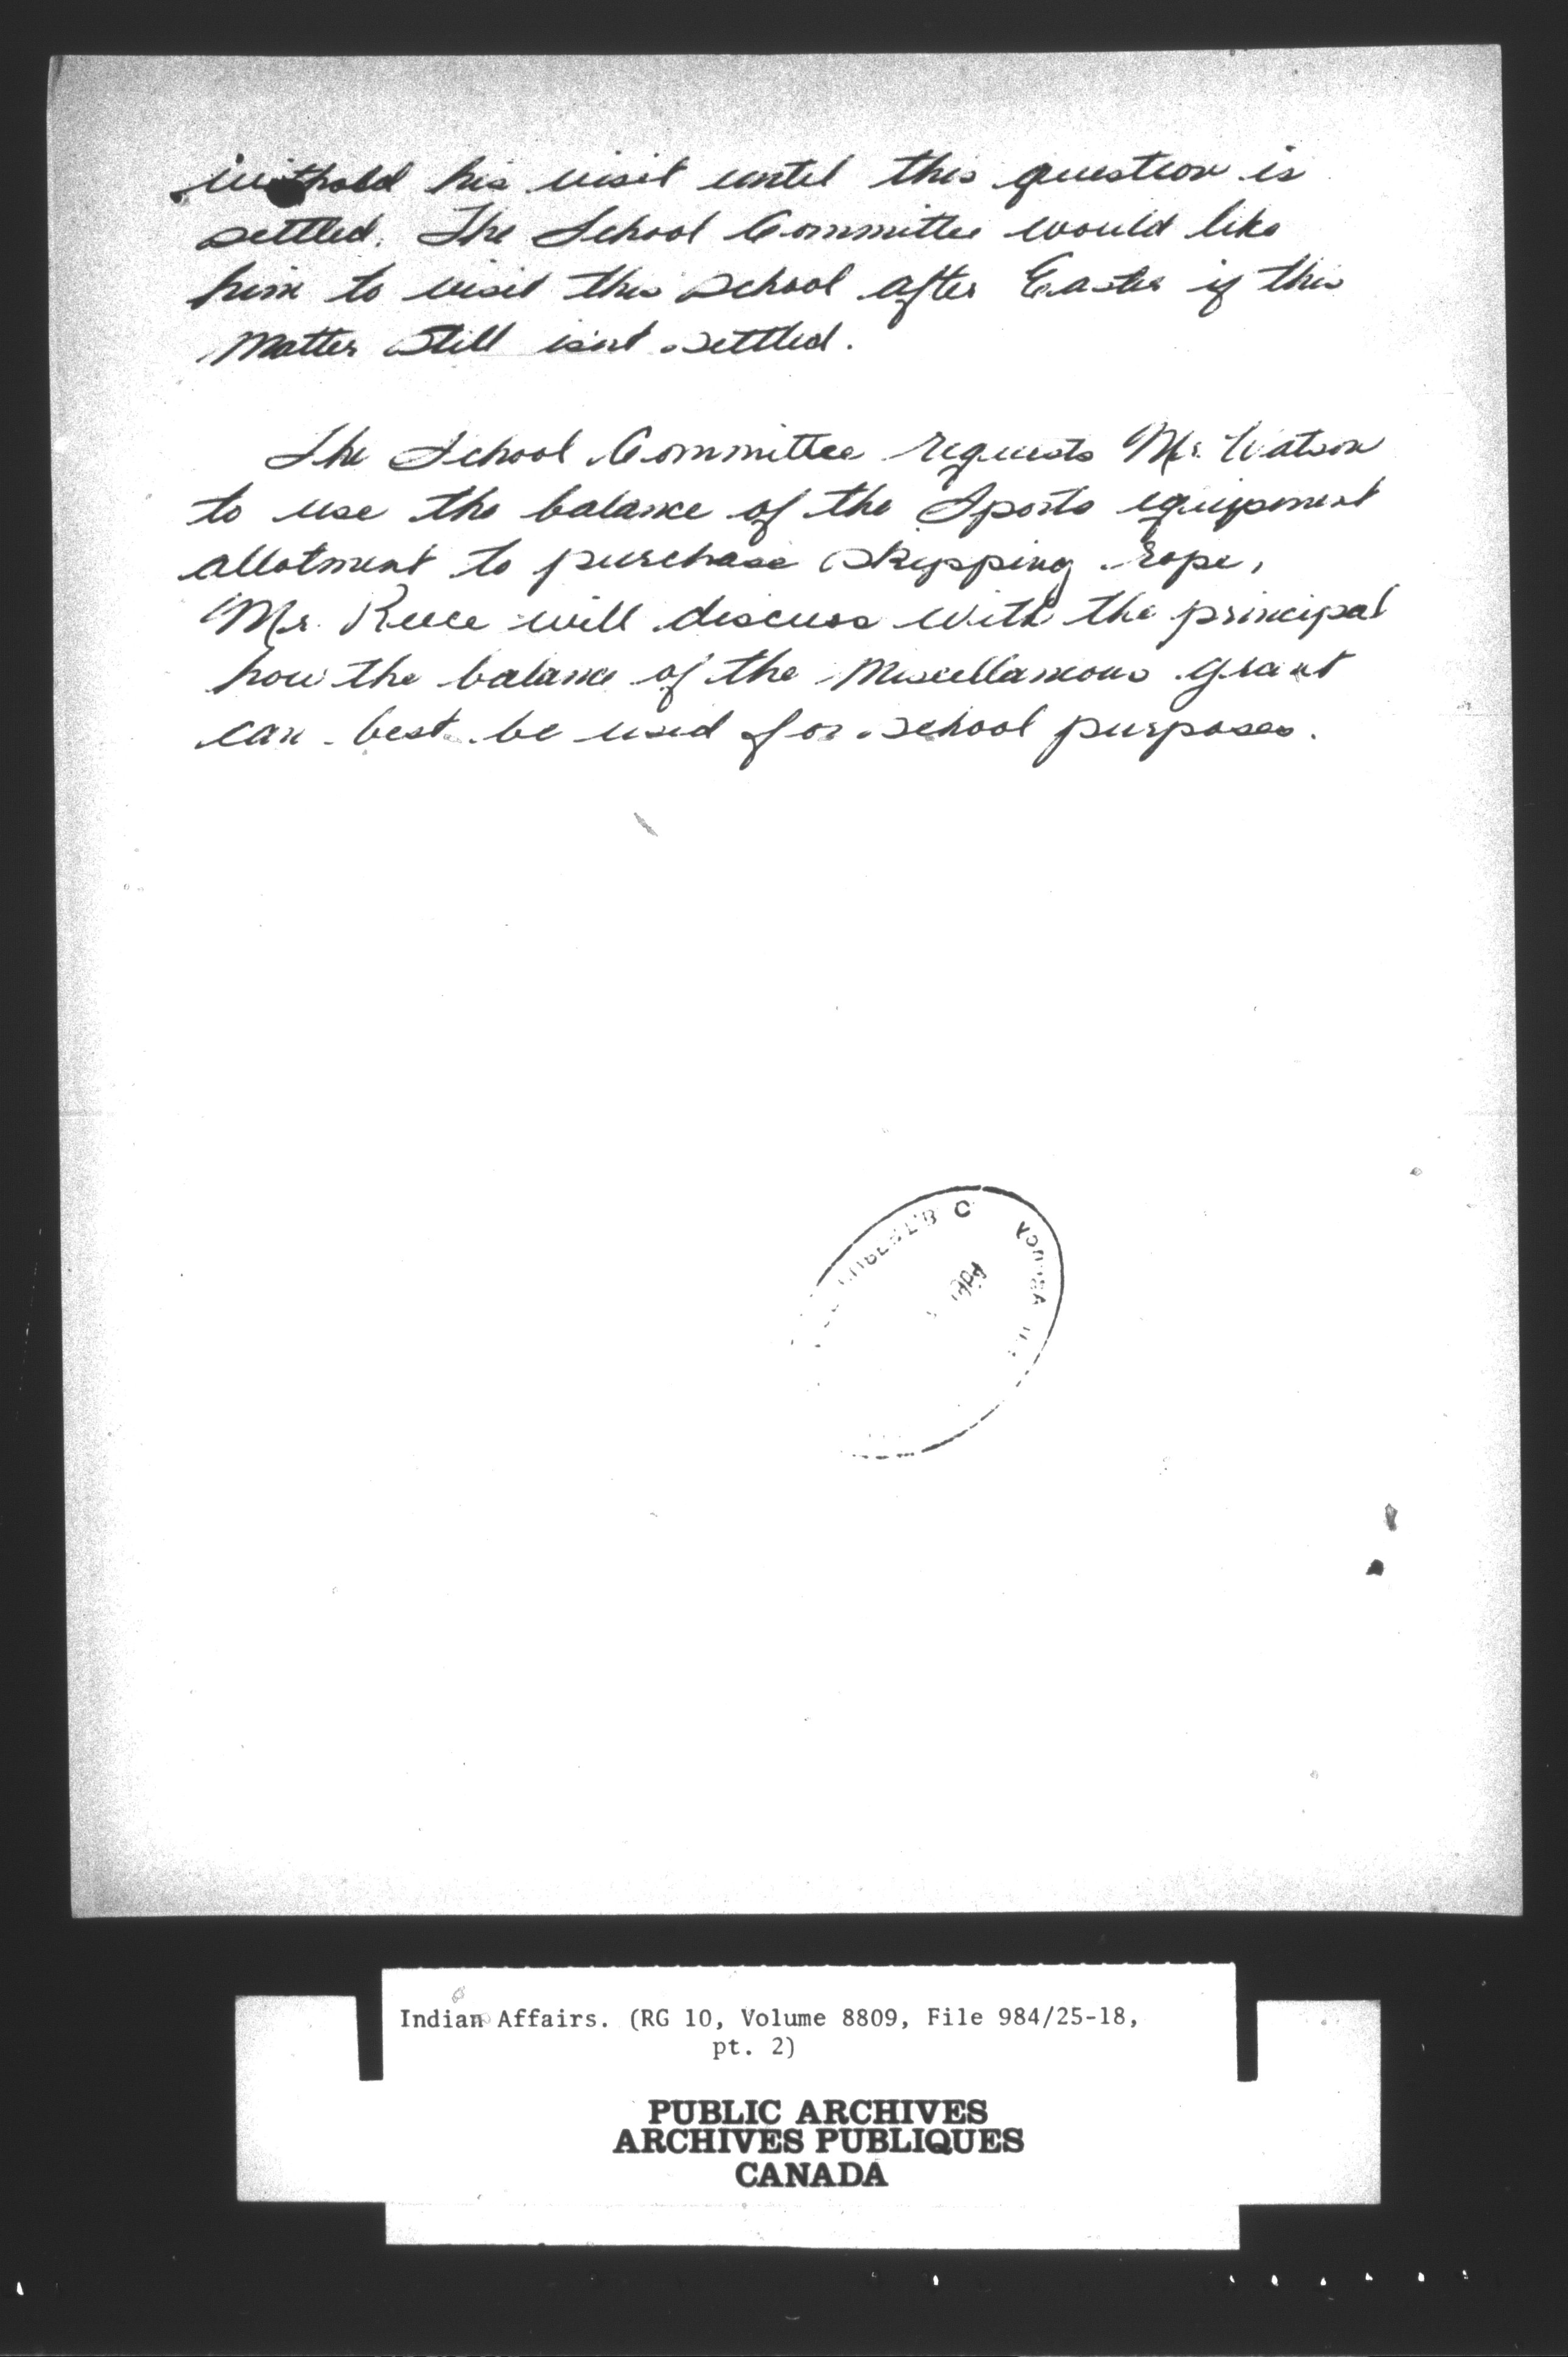 withold his visit until this question is
settled. The School Committee would like
him to visit this school after Easter if this
matter still isnt settled.
The School Committee requests Mr. Watson
to use the balance of the Sports equipment
allotment to purchase skipping rope,
Mr. Reece will discuss with the principal
how the balance of the Miscellaneous grant
can best be used for school purposes.
Indian Affairs. (RG 10, Volume 8809, File 984/25-18,
pt. 2)
PUBLIC ARCHIVES
ARCHIVES PUBLIQUES
CANADA